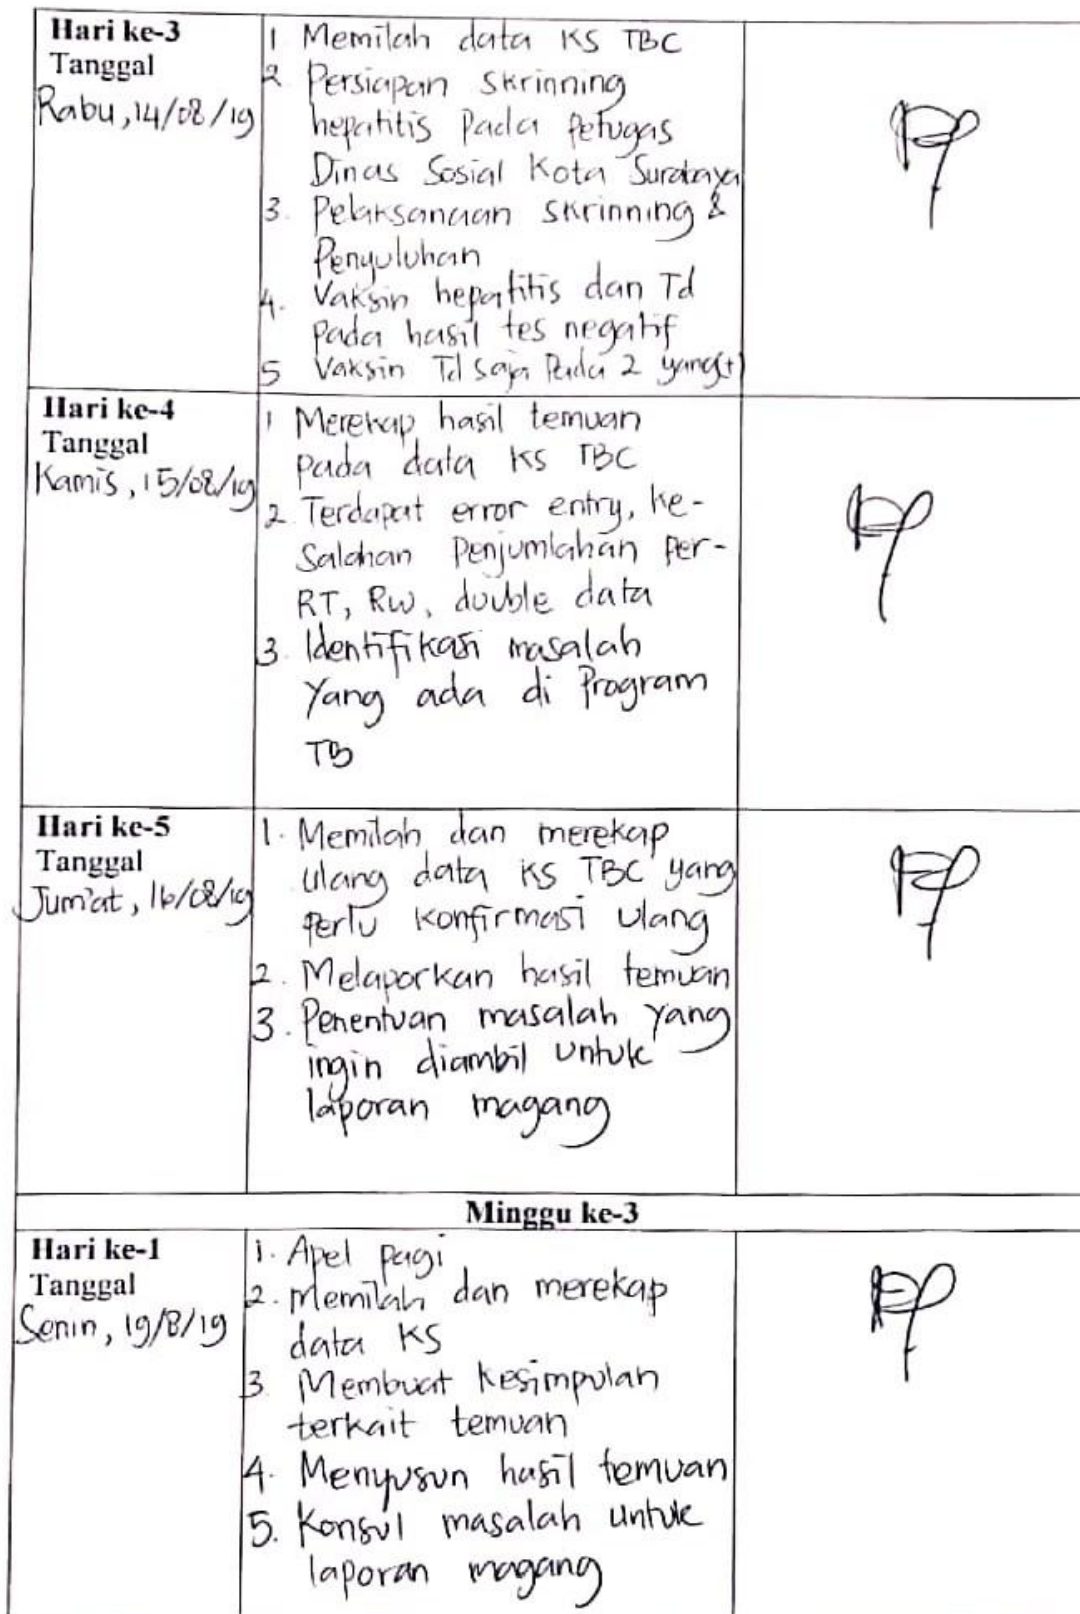 Hari ke-3
Tanggal
Rabu, 14/08/19
1 Memilah data KS TBC
2 Persiapan skrinning
hepatitis pada petugas
Dinas Sosial Kota Surabaya
3. Pelaksanaan skrinning &
Penyuluhan
4. Vaksin hepatitis dan Td
pada hasil tes negatif
5 Vaksin Td saja pada 2 yang (+)
Hari ke-4
Tanggal
Kamis, 15/08/19
1 Merekap hasil temuan
pada data KS TBC
2 Terdapat error entry, ke-
salahan penjumlahan per-
RT, RW, double data
3. Identifikasi masalah
yang ada di Program
TB
Hari ke-5
Tanggal
Jum'at, 16/08/19
1. Memilah dan merekap
ulang data KS TBC yang
perlu konfirmasi ulang
2. Melaporkan hasil temuan
3. Penentuan masalah yang
ingin diambil untuk
laporan magang
Minggu ke-3
Hari ke-1
Tanggal
Senin, 19/8/19
1. Apel pagi
2. Memilah dan merekap
data KS
3. Membuat kesimpulan
terkait temuan
4. Menyusun hasil temuan
5. Konsul masalah untuk
laporan magang